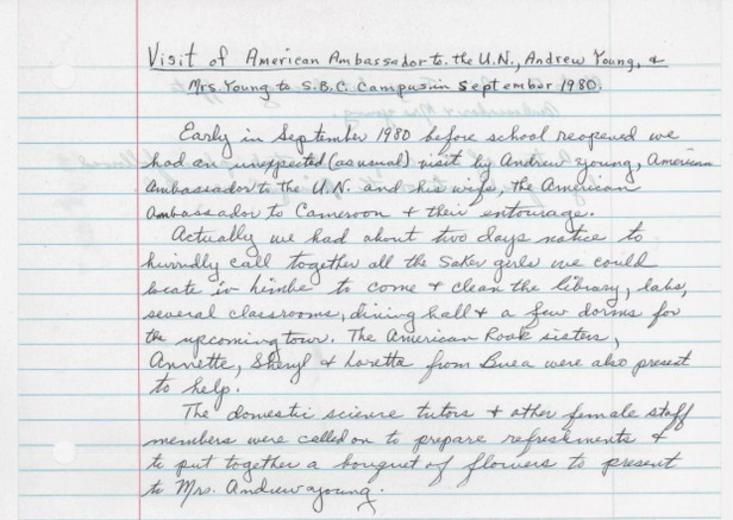 Visit of American Ambassador to the U.N., Andrew Young, &
Mrs. Young to S.B.C. Campus in September 1980.
Early in September 1980 before school reopened we
had an unexpected (as usual) visit by Andrew Young, American
Ambassador to the U.N. and his wife, the American
Ambassador to Cameroon & their entourage.
Actually we had about two days notice to
hurriedly call together all the Saker girls we could
locate in Limbe to come & clean the library, labs,
several classrooms, dining hall & a few dorms for
the upcoming tour. The American Rook sisters,
Annette, Sheryl & Loretta from Buea were also present
to help.
The domestic science tutors & other female staff
members were called on to prepare refreshments &
to put together a bouquet of flowers to present
to Mrs. Andrew Young.